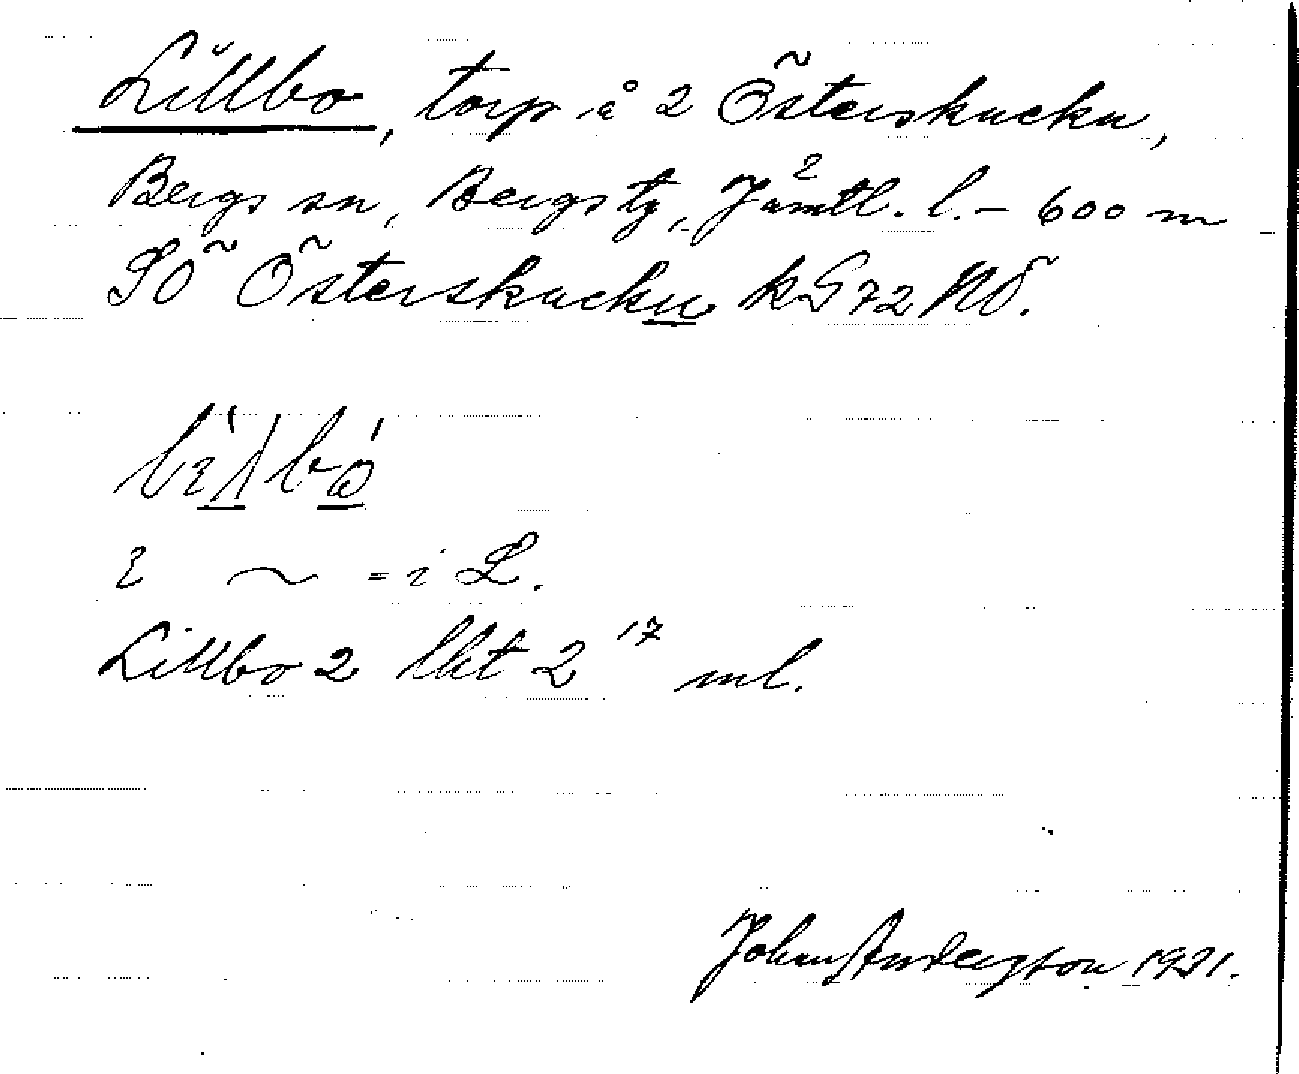 Lillbo, torp å 2 Österskucku,
Bergs sn, Bergs tg, Jämtl. l. – 600 m
SO Österskucku kG72 NO.
~ = i L.
Lillbo 2 lkt 2 17 ml.
Johan Anderzson 1931.